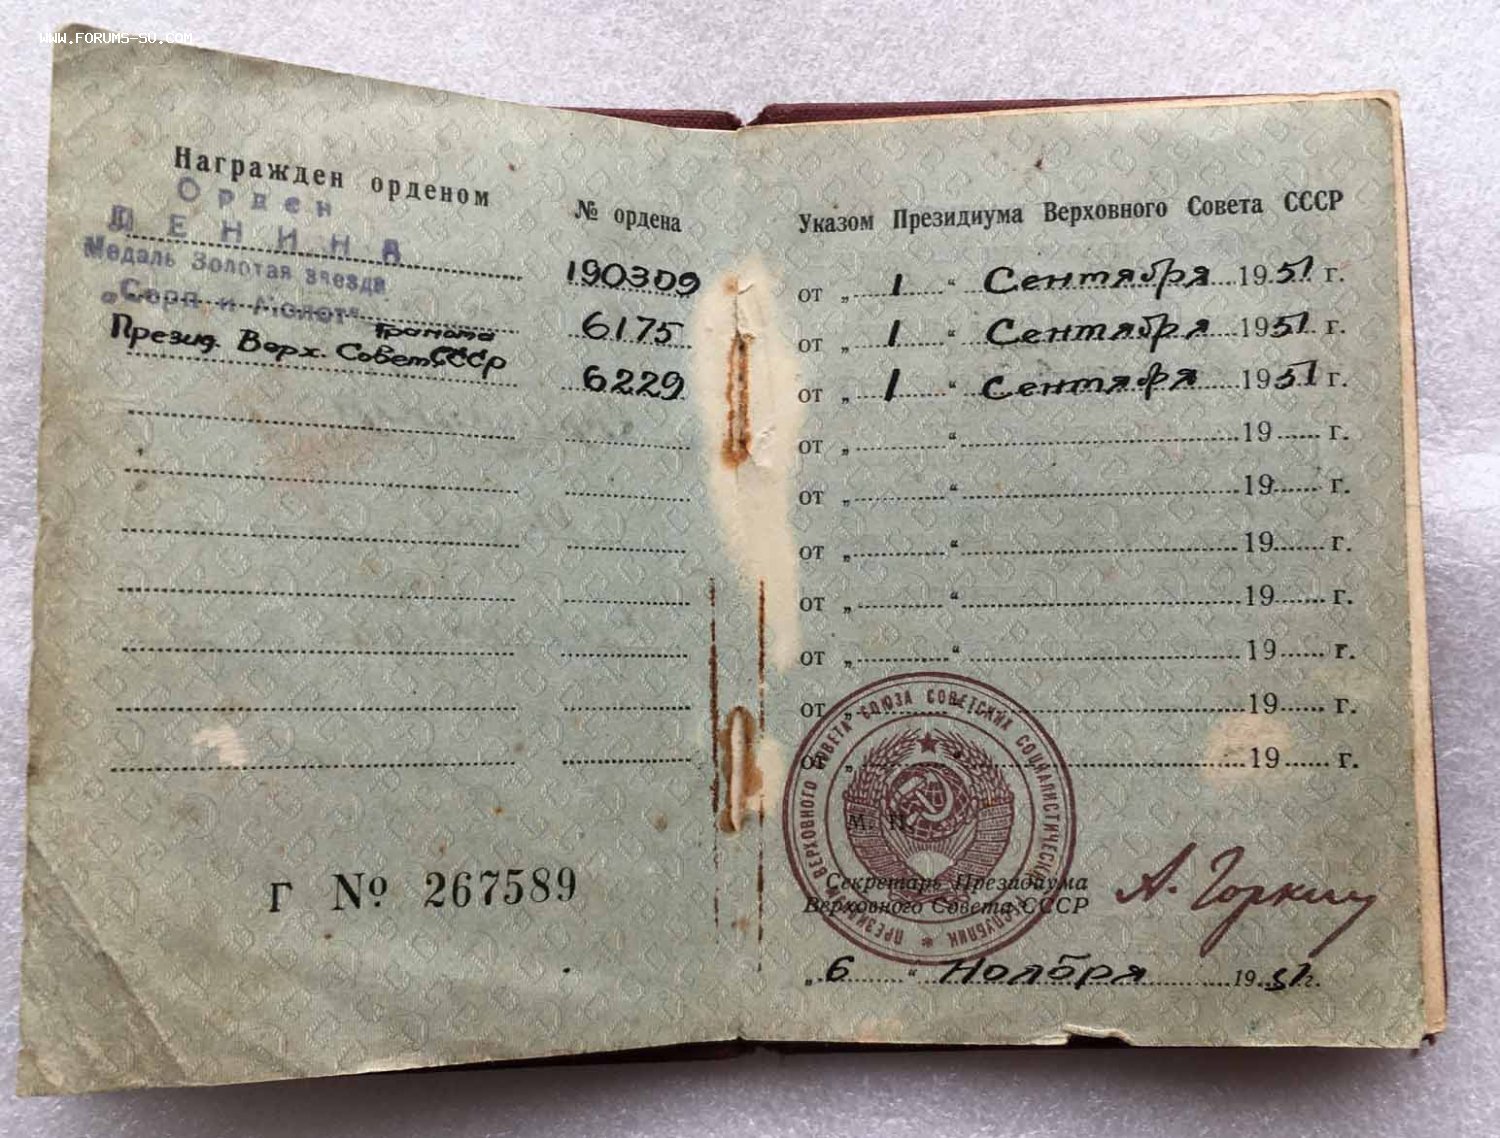 WWW.FORUMS-SU.COM
Награжден орденом
№ ордена
Орден
ЛЕНИНА
190309
Медаль Золотая звезда
„Серп и Молот“
6175
Грамота
Презид. Верх. Совет СССР
6229
Г № 267589
Указом Президиума Верховного Совета СССР
от „ 1 “ Сентября 1951 г.
от „ 1 “ Сентября 1951 г.
от „ 1 “ Сентября 1951 г.
от „ “ 19 г.
от „ “ 19 г.
от „ “ 19 г.
от „ “ 19 г.
от „ “ 19 г.
от „ “ 19 г.
от „ “ 19 г.
ПРЕЗИДИУМ ВЕРХОВНОГО СОВЕТА СОЮЗА СОВЕТСКИХ СОЦИАЛИСТИЧЕСКИХ РЕСПУБЛИК *
М. П.
Секретарь Президиума
Верховного Совета СССР
А. Горкин
„ 6 “ Ноября 1951 г.